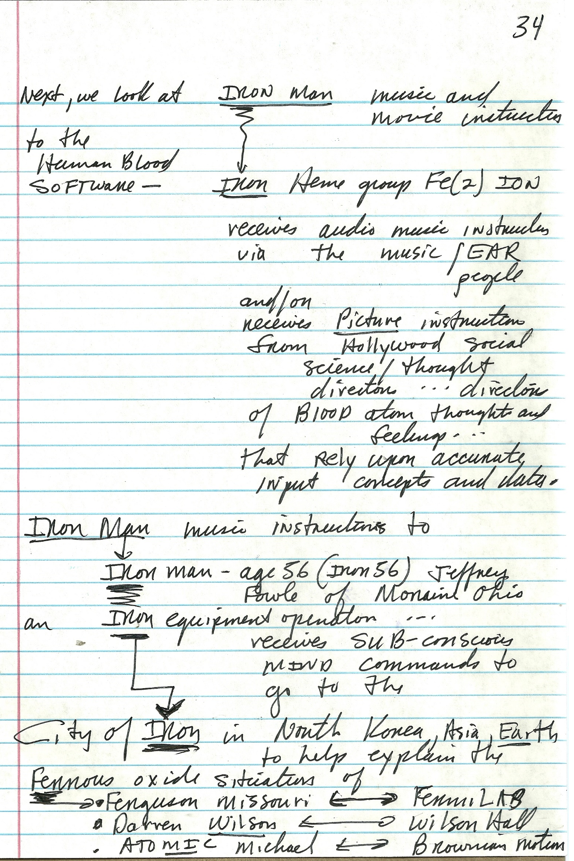 34
Next, we look at IRON Man music and
movie instructions
to the
Human Blood
SOFTware —
Iron Heme group Fe(2) ION
receives audio music instructions
via the music / EAR
people
and/or
receives Picture instructions
from Hollywood social
science / thought
directors ... directors
of Blood atom thoughts and
feelings...
that rely upon accurate
input concepts and data.
Iron Man music instructions to
Iron man - age 56 (Iron 56) Jeffrey
Fowle of Moraine Ohio
an Iron equipment operator ...
receives SUB-conscious
MIND commands to
go to the
City of Iron in North Korea, Asia, Earth
to help explain the
Ferrous oxide situation of
• Ferguson Missouri ↔ FermiLAB
• Darren Wilson ↔ Wilson Hall
• ATOMIC Michael ↔ Brownian motion